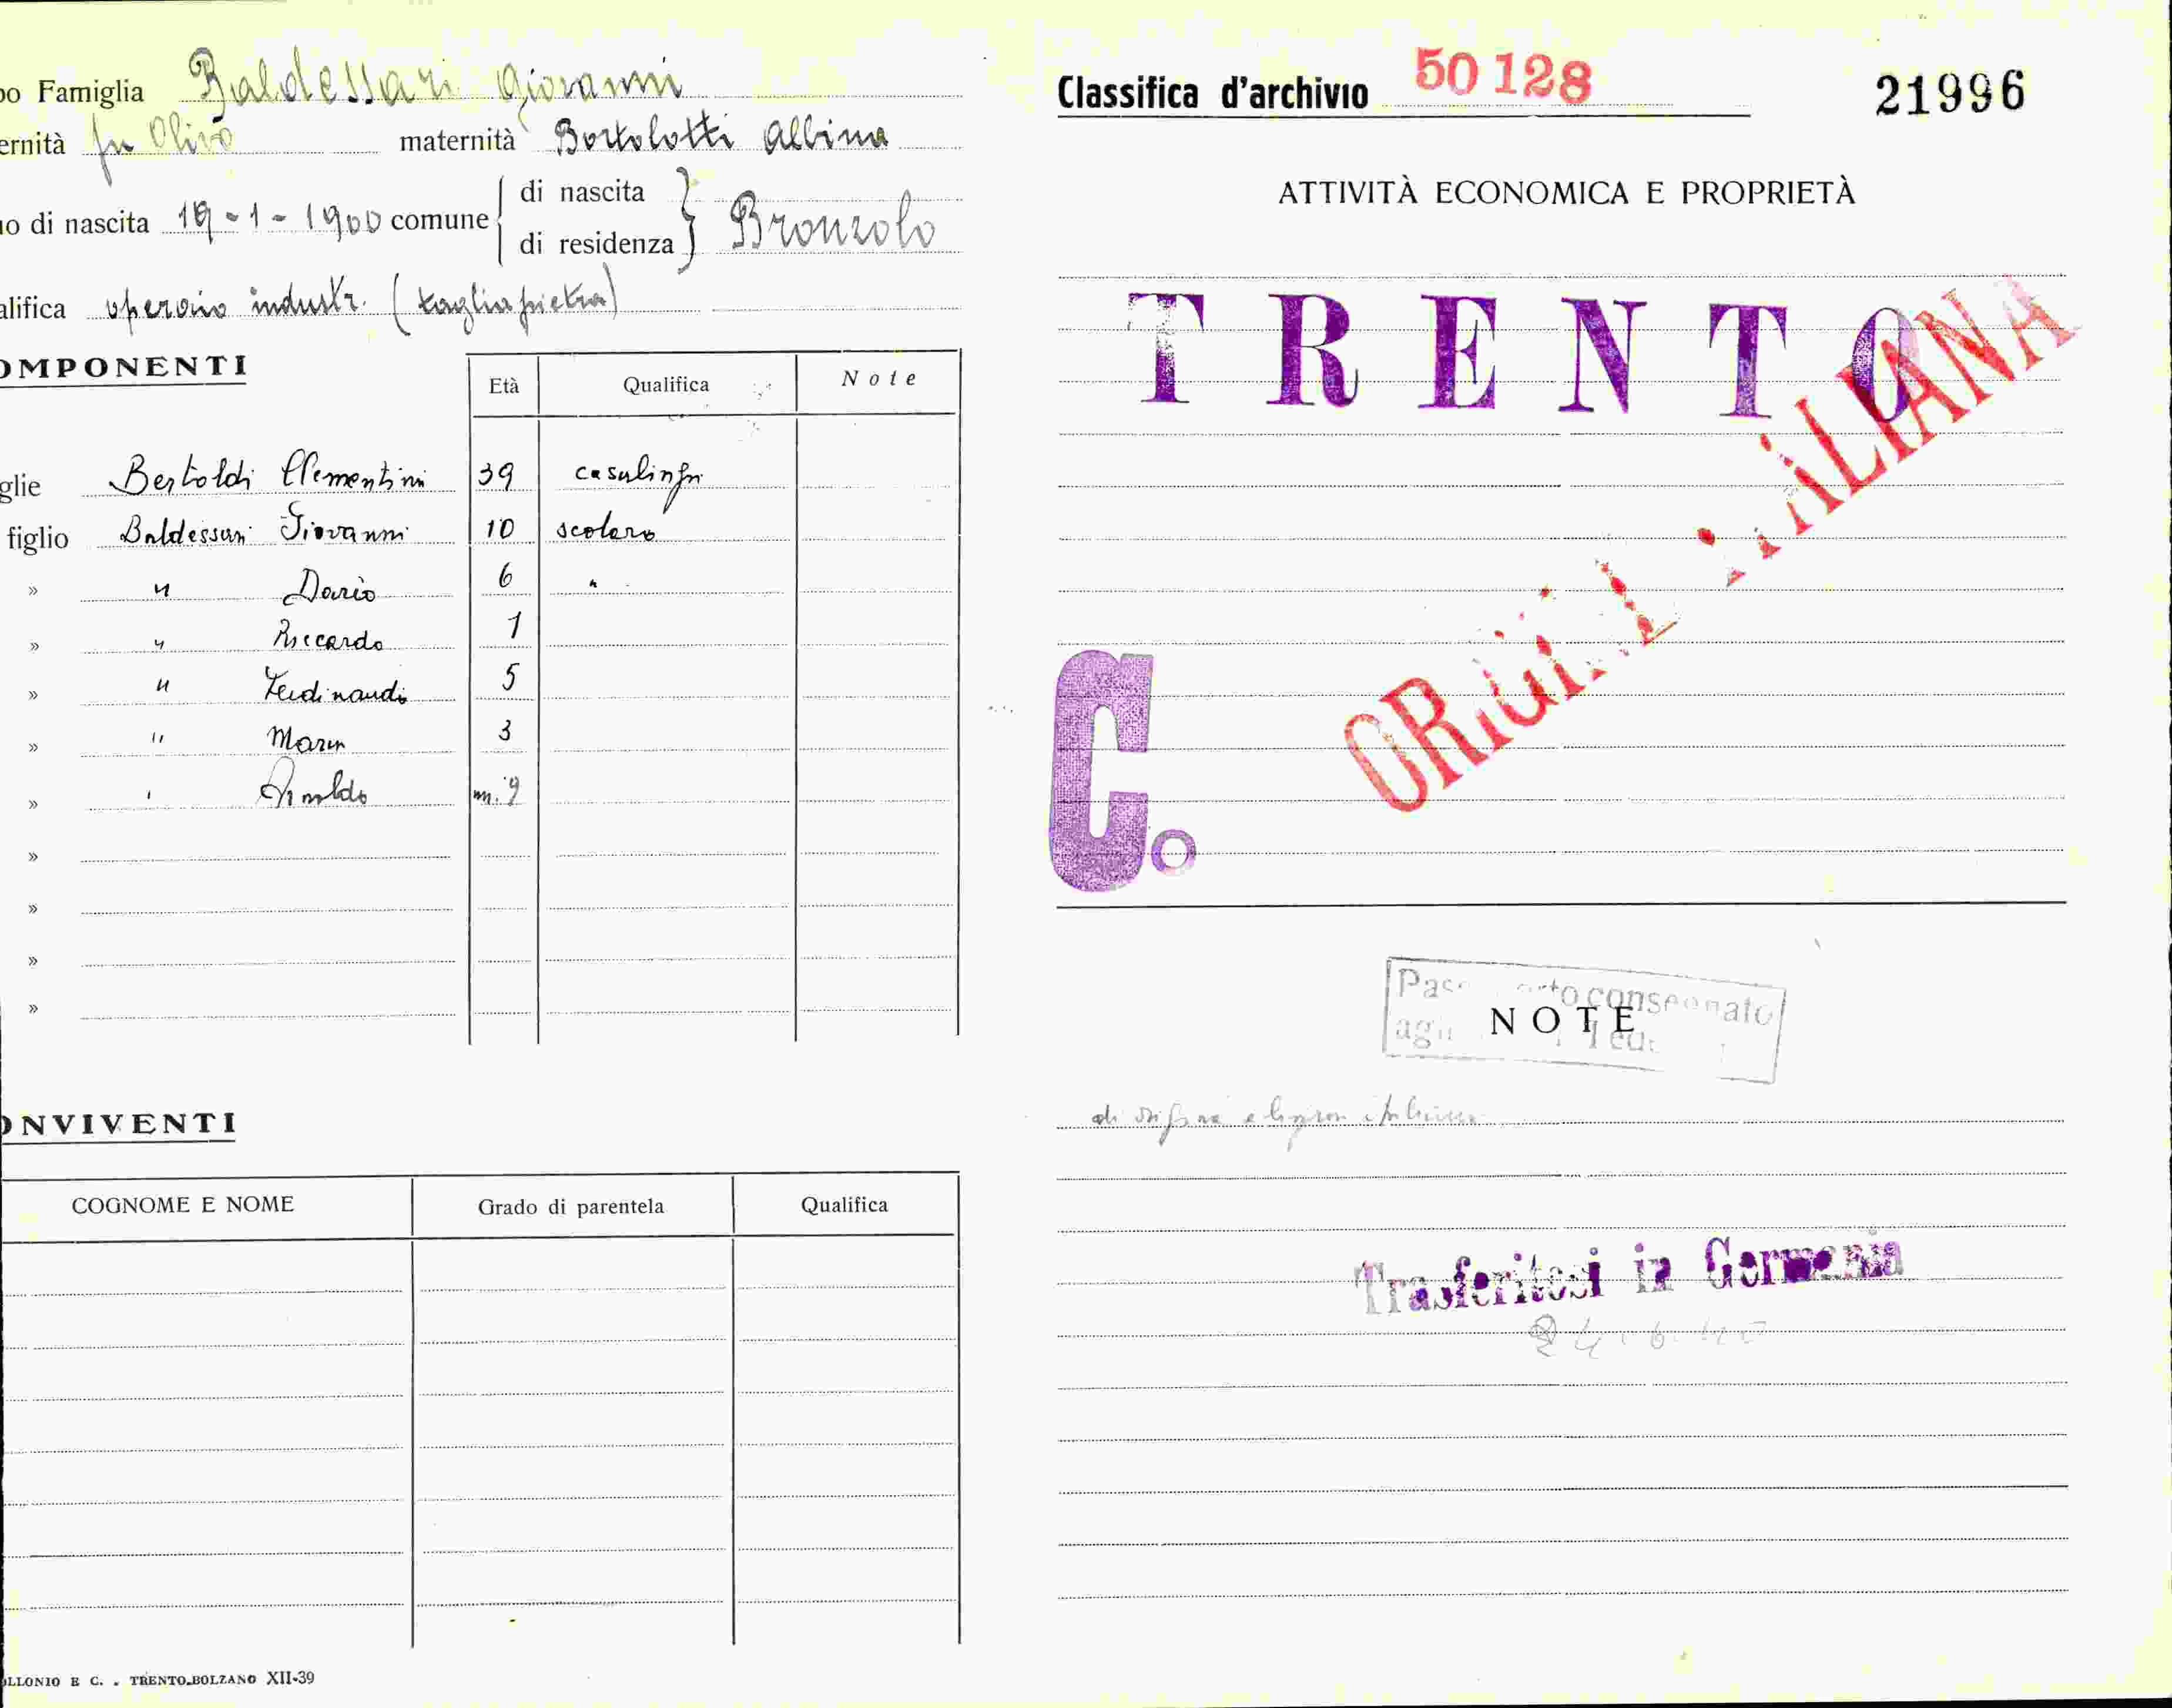 po Famiglia Baldessari Giovanni
ernità fu Olivo maternità Bortolotti Albina
no di nascita 19-1-1900 comune di nascita di residenza Bronzolo
alifica operaio industr. (tagliapietra)
OMPONENTI
Età Qualifica Note
glie Bertoldi Clementina 39 casalinga
figlio Baldessari Giovanni 10 scolaro
» " Dario 6 "
» " Riccardo 1
» " Ferdinando 5
» " Maria 3
» " Arnoldo m. 9
»
»
»
»
ONVIVENTI
COGNOME E NOME Grado di parentela Qualifica
OLLONIO E C. . TRENTO-BOLZANO XII-39
Classifica d'archivio 50128 21996
ATTIVITÀ ECONOMICA E PROPRIETÀ
TRENTO
ORIGINE ITALIANA
C.
consegnato
NOTE
di origine e lingua italiana
Trasferitosi in Germania
24.6.40